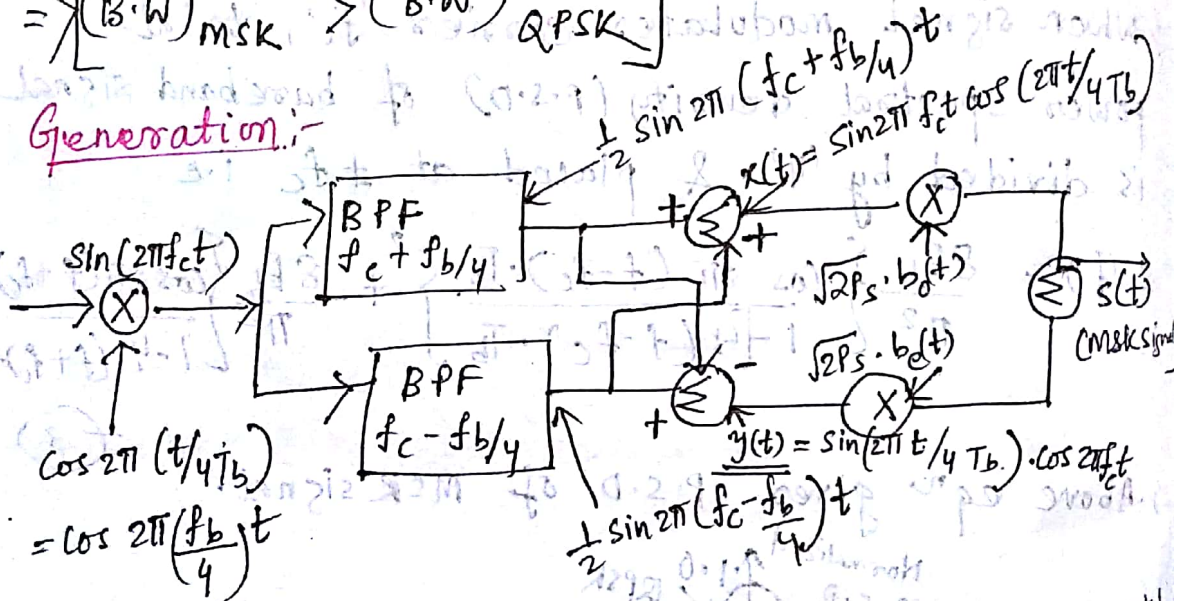 => [(B.W)MSK > (B.W)QPSK]
Generation:-
1/2 sin 2π (fc + fb/4)t
x(t) = sin2π fct cos (2πt/4Tb)
BPF
fc + fb/4
Σ
+
+
X
sin(2πfct)
X
√2Ps . bo(t)
Σ
s(t)
(MSK
BPF
fc - fb/4
Σ
-
+
√2Ps . be(t)
X
y(t) = sin(2π t/4Tb.) . cos 2πfct
cos 2π (t/4Tb)
= cos 2π(fb/4)t
1/2 sin 2π (fc - fb/4)t